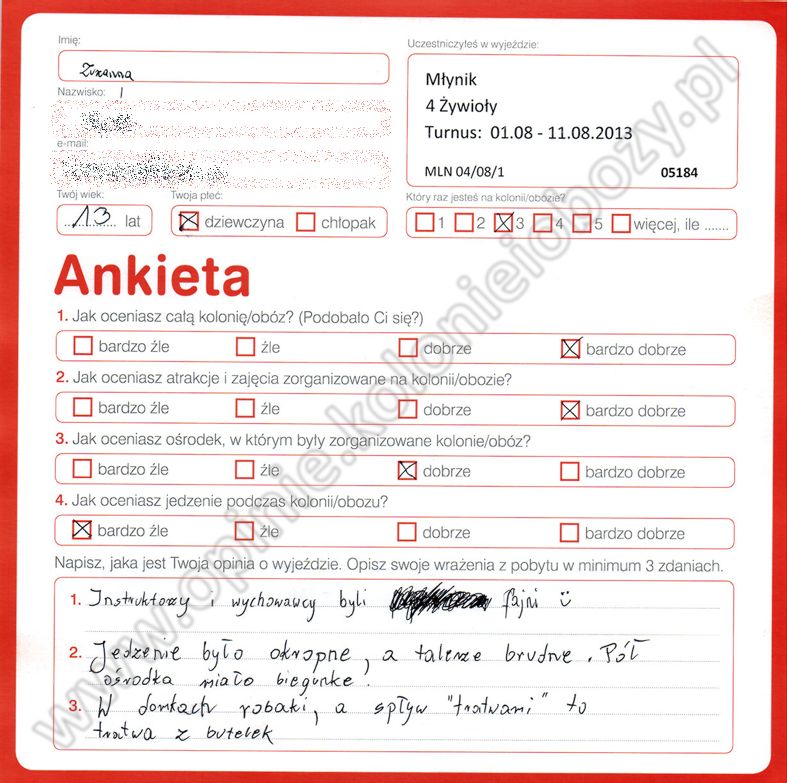 Imię:
Zuzanna
Nazwisko:
e-mail:
Twój wiek:
13 lat
Twoja płeć:
dziewczyna chłopak
Uczestniczyłeś w wyjeździe:
Młynik
4 Żywioły
Turnus: 01.08 - 11.08.2013
MLN 04/08/1 05184
Który raz jesteś na kolonii/obozie?
1 2 3 4 5 więcej, ile .......
Ankieta
1. Jak oceniasz całą kolonię/obóz? (Podobało Ci się?)
bardzo źle źle dobrze bardzo dobrze
2. Jak oceniasz atrakcje i zajęcia zorganizowane na kolonii/obozie?
bardzo źle źle dobrze bardzo dobrze
3. Jak oceniasz ośrodek, w którym były zorganizowane kolonie/obóz?
bardzo źle źle dobrze bardzo dobrze
4. Jak oceniasz jedzenie podczas kolonii/obozu?
bardzo źle źle dobrze bardzo dobrze
Napisz, jaka jest Twoja opinia o wyjeździe. Opisz swoje wrażenia z pobytu w minimum 3 zdaniach.
1. Instruktorzy i wychowawcy byli fajni
2. Jedzenie było okropne, a talerze brudne. Pół
ośrodka miało biegunke.
3. W domkach robaki, a spływ "tratwami" to
tratwa z butelek
www.opinie.kolonieiobozy.pl